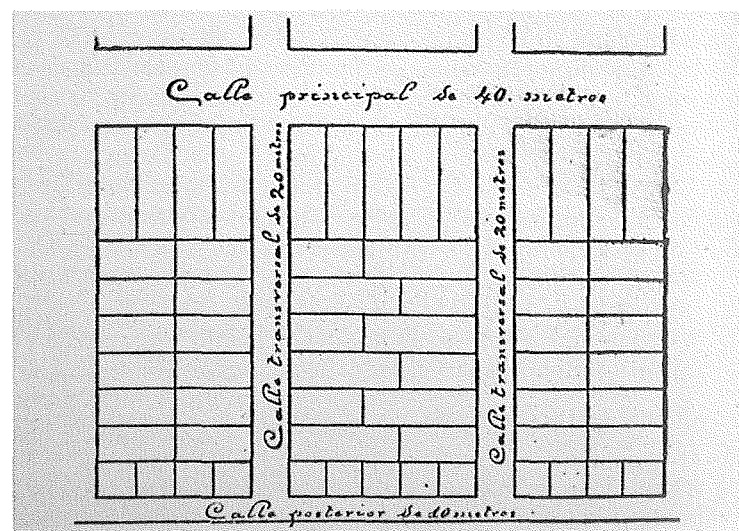 Calle principal de 40. metros
Calle transversal de 20 metros
Calle transversal de 20 metros
Calle posterior de 10 metros.